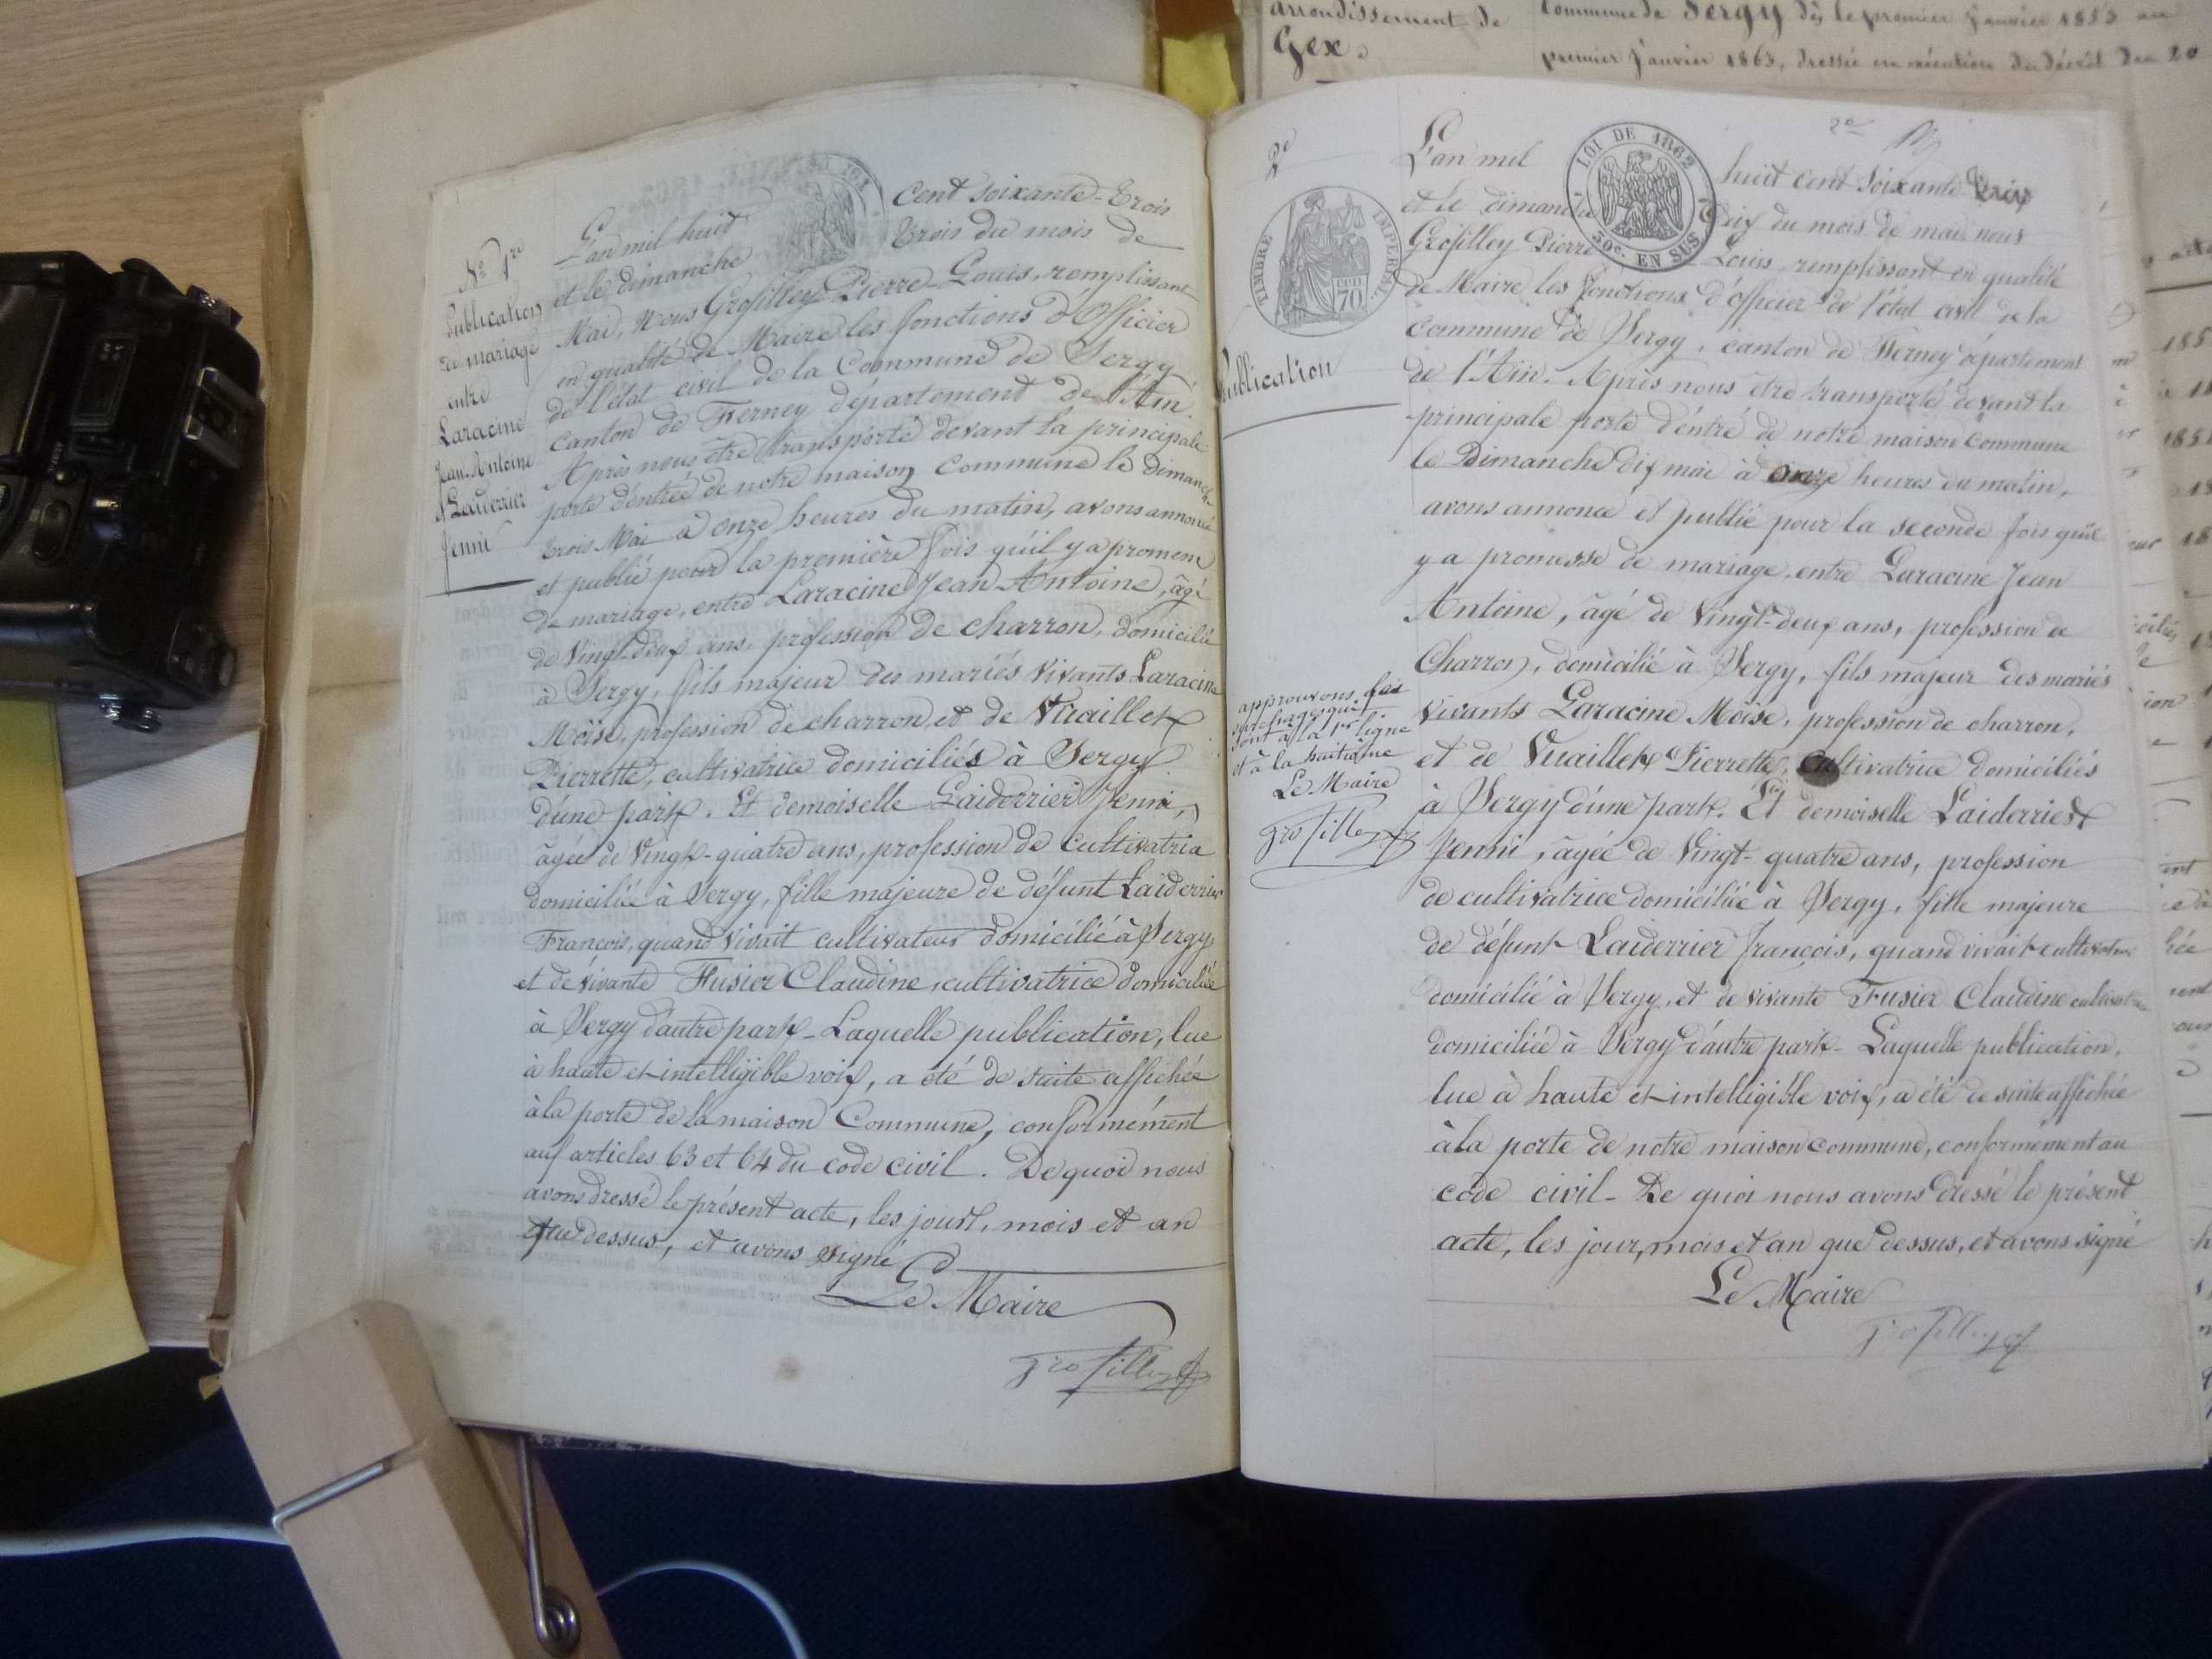 arrondissement de
Gex.
Commune de Sergy dès le premier Janvier 1853 au
premier Janvier 1863, dressée en exécution du décret du 20
Nº 1re
Publication
de mariage
entre
Laracine
Jean-Antoine
et Laiderrier
Jenni
L'an mil huit cent soixante-trois
et le dimanche trois du mois de
Mai, Nous Grosfilley Pierre-Louis, remplissant
en qualité de Maire les fonctions d'Officier
de l'état civil de la Commune de Sergy
canton de Ferney département de l'Ain.
Après nous être transporté devant la principale
porte d'entrée de notre maison commune le dimanche
trois Mai à onze heures du matin, avons annoncé
et publié pour la première fois qu'il y a promesse
de mariage, entre Laracine Jean Antoine, âgé
de Vingt-deux ans, profession de charron, domicilié
à Sergy, fils majeur des mariés vivants Laracine
Moïse, profession de charron, et de Vuaillet
Pierrette, cultivatrice domiciliés à Sergy
d'une part. Et demoiselle Laiderrier Jenni,
âgée de Vingt-quatre ans, profession de Cultivatrice
domiciliée à Sergy, fille majeure de défunt Laiderrier
François, quand vivait cultivateur domicilié à Sergy,
et de vivante Fusier Claudine, cultivatrice domiciliée
à Sergy d'autre part - Laquelle publication, lue
à haute et intelligible voix, a été de suite affichée
à la porte de la maison Commune, conformément
aux articles 63 et 64 du code civil. De quoi nous
avons dressé le présent acte, les jour, mois et an
que dessus, et avons signé
Le Maire
Grosfilley
2e
TIMBRE IMPERIAL
70
LOI DE 1862
30c. EN SUS
Publication
approuvons les
surcharges qui
sont à la 1re ligne
et à la huitième
Le Maire
Grosfilley
L'an mil huit cent soixante trois
et le dimanche dix du mois de mai nous
Grosfilley Pierre Louis remplissant en qualité
de Maire les fonctions d'officier de l'état civil de la
commune de Sergy, canton de Ferney département
de l'Ain. Après nous être transporté devant la
principale porte d'entré de notre maison commune
le Dimanche dix mai à onze heures du matin,
avons annoncé et publié pour la seconde fois qu'il
y a promesse de mariage, entre Laracine Jean
Antoine, âgé de Vingt-deux ans, profession de
Charron, domicilié à Sergy, fils majeur des mariés
vivants Laracine Moïse, profession de charron,
et de Vuaillet Pierrette, cultivatrice domiciliés
à Sergy d'une part. Et demoiselle Laiderrier
Jenni, âgée de Vingt-quatre ans, profession
de cultivatrice domiciliée à Sergy, fille majeure
de défunt Laiderrier François, quand vivait cultivateur
domicilié à Sergy, et de vivante Fusier Claudine cultivatrice
domiciliée à Sergy d'autre part - Laquelle publication,
lue à haute et intelligible voix, a été de suite affichée
à la porte de notre maison commune, conformément au
code civil - De quoi nous avons dressé le présent
acte, les jour, mois et an que dessus, et avons signé
Le Maire
Grosfilley